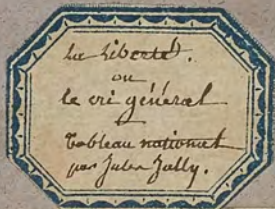 La Liberté.
ou
le cri général
Tableau national
par Jules Jally.